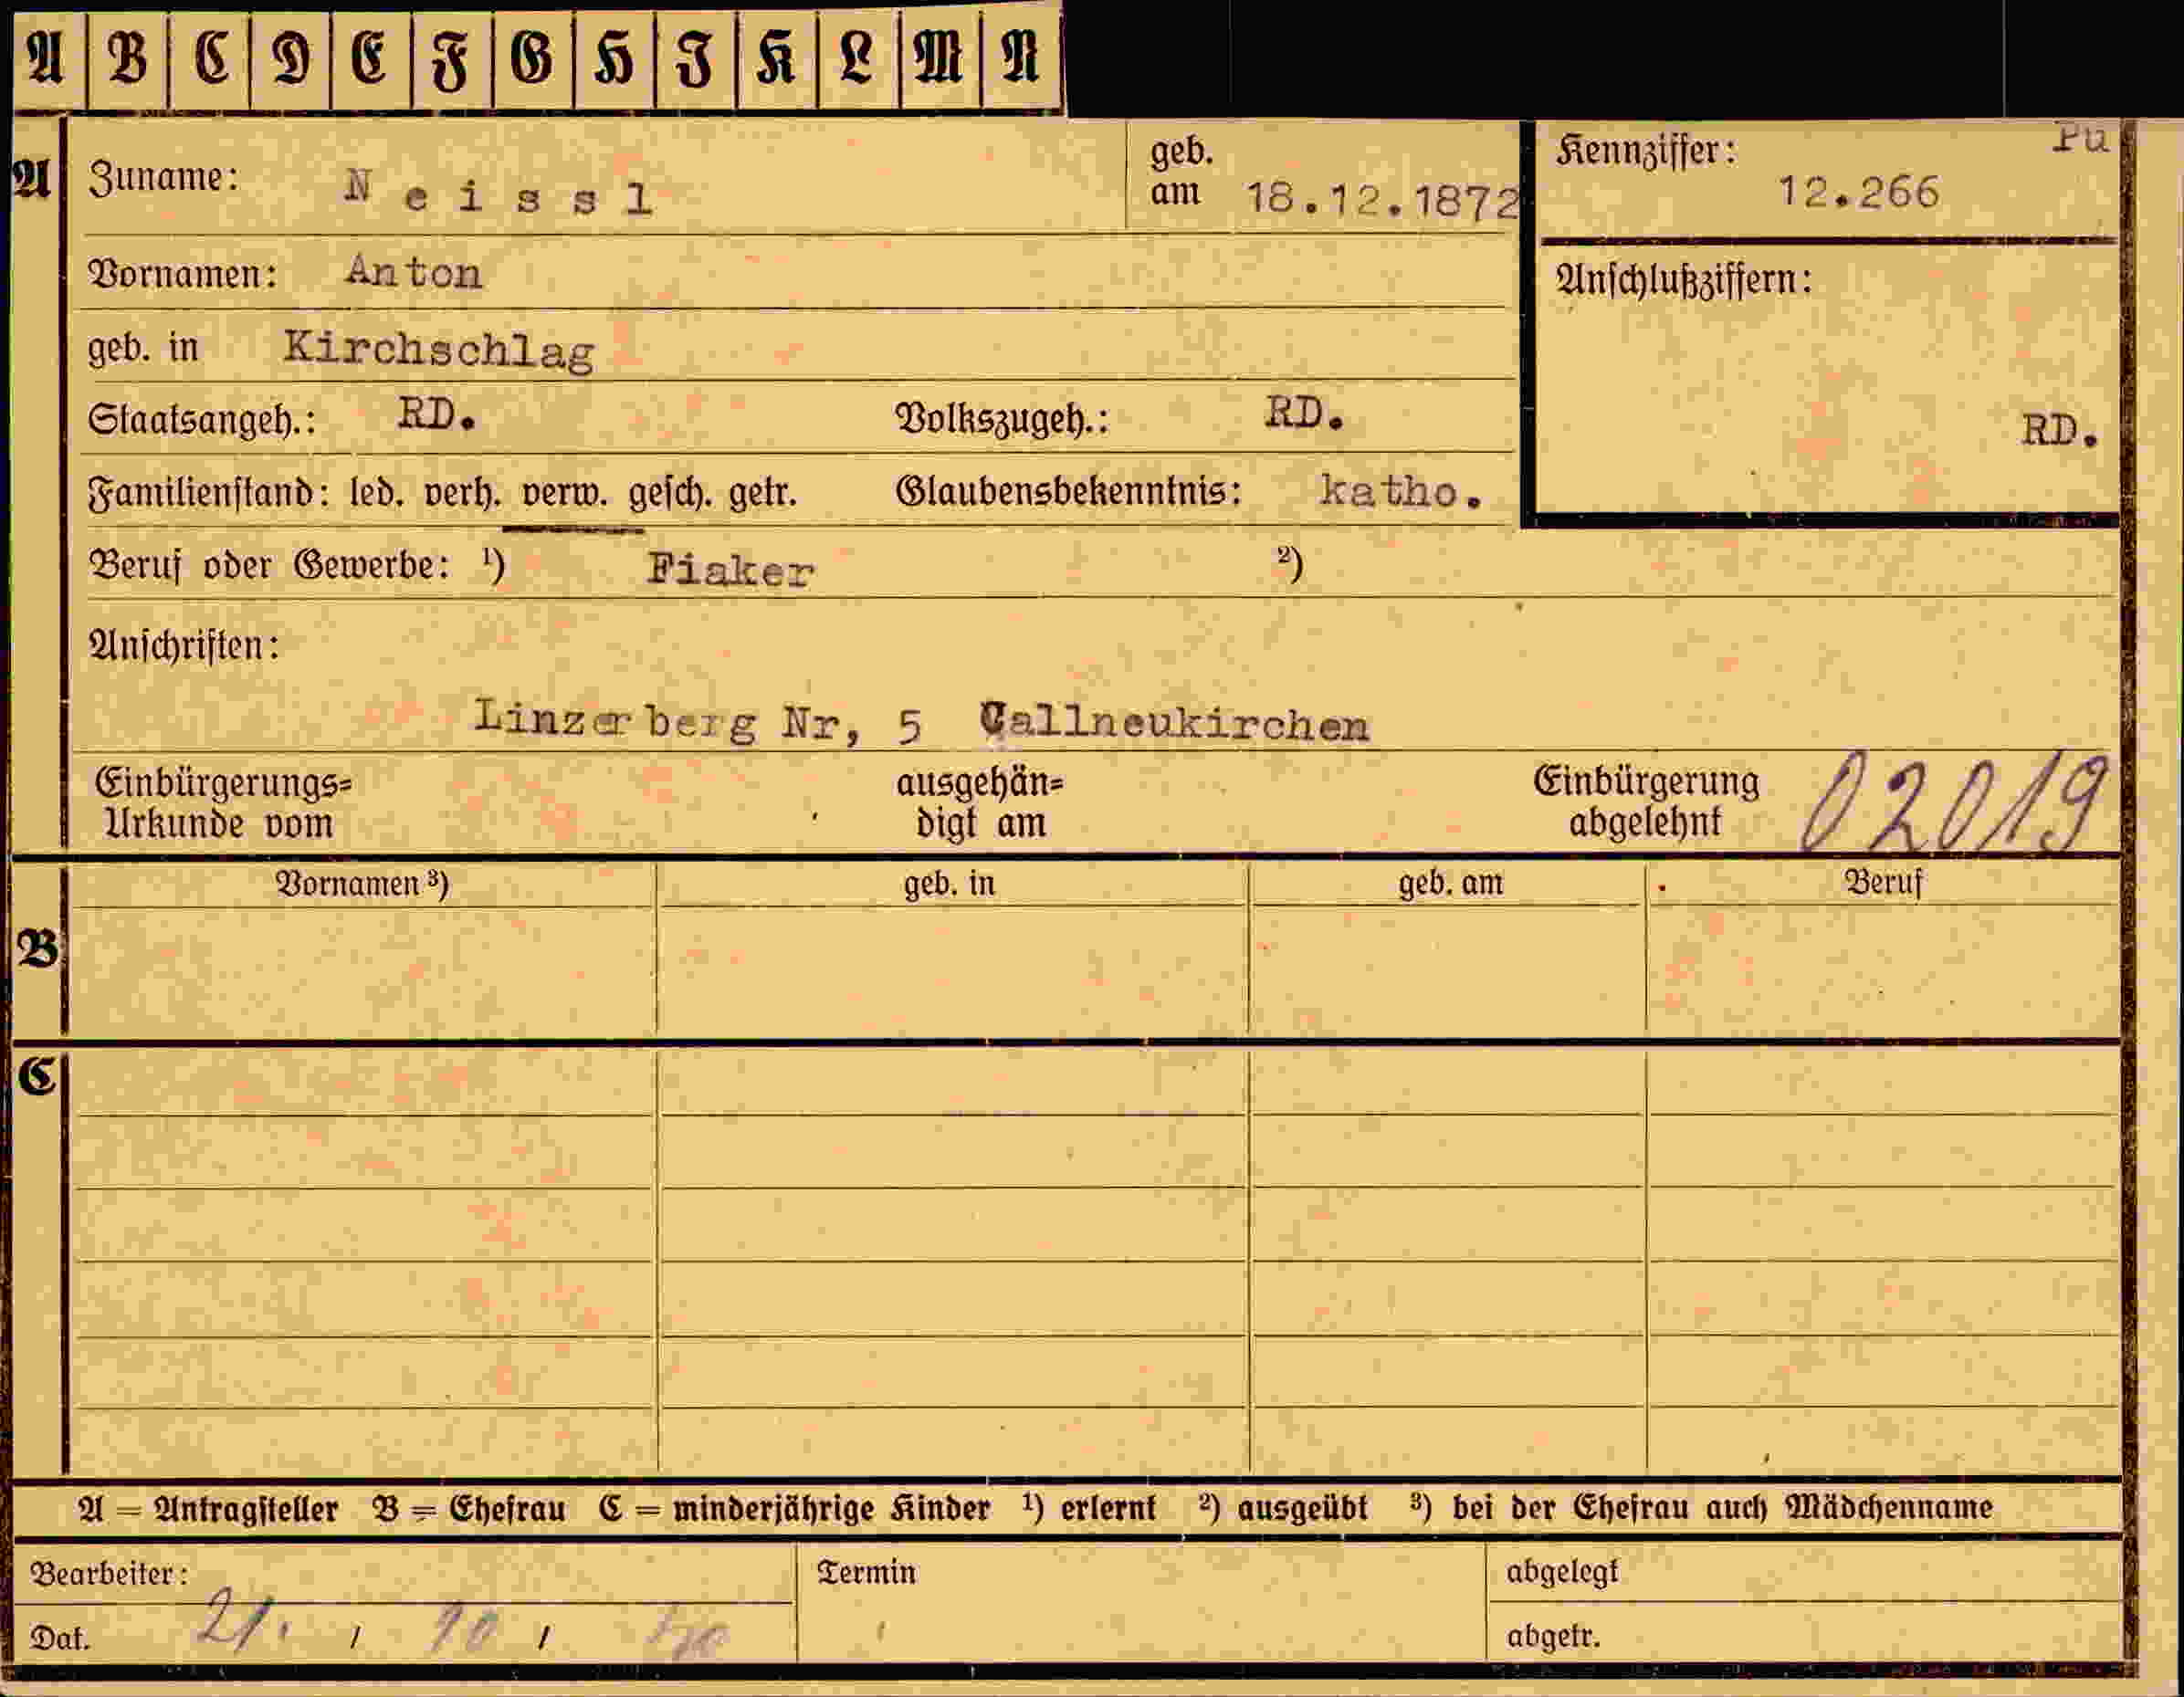 A B C D E F G H I K L M N
A Zuname: Neissl geb. am 18.12.1872 Kennziffer: 12.266 Pu
Vornamen: Anton Anschlußziffern:
geb. in Kirchschlag
Staatsangeh.: RD. Volkszugeh.: RD. RD.
Familienstand: led. verh. verw. gesch. getr. Glaubensbekenntnis: katho.
Beruf oder Gewerbe: ¹) Fiaker ²)
Anschriften:
Linzerberg Nr, 5 Gallneukirchen
Einbürgerungs= Urkunde vom ausgehän= digt am Einbürgerung abgelehnt 02019
Vornamen ³) geb. in geb. am Beruf
B
C
A = Antragsteller B = Ehefrau C = minderjährige Kinder ¹) erlernt ²) ausgeübt ³) bei der Ehefrau auch Mädchenname
Bearbeiter: Termin abgelegt
Dat. 21. / / abgetr.